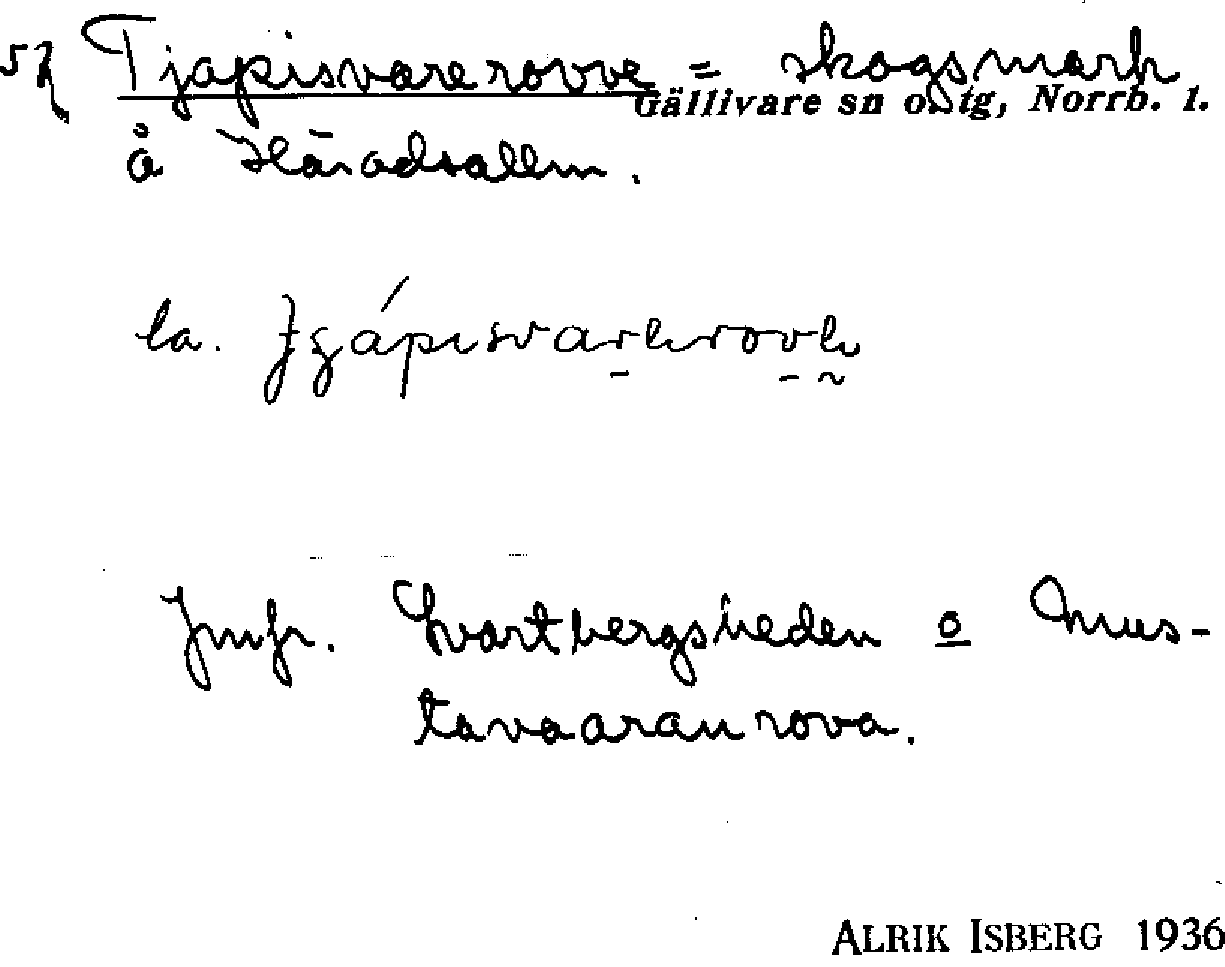 Tjapisvarerovve = skogsmark
Gällivare sn o. tg, Norrb. l.
å Häradsallm.
la.
Jmfr. Svartbergsheden o Mus-
tavaaranrova.
ALRIK ISBERG 1936